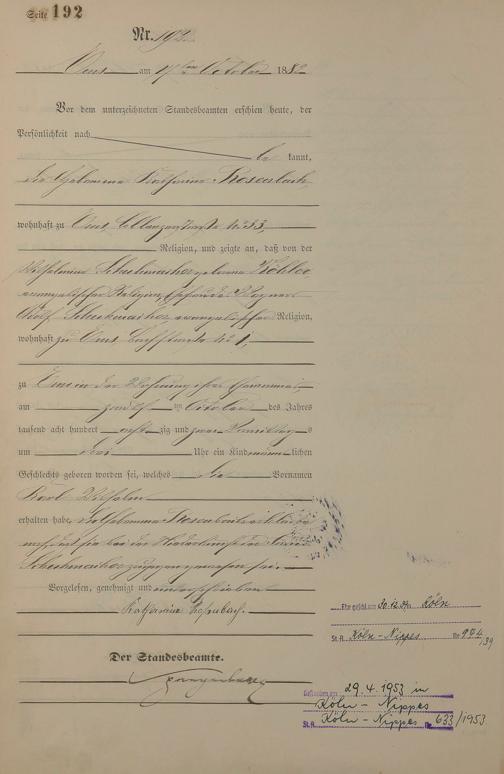 Seite 192
Nr. 192
Ems am 17ten October 1882
Vor dem unterzeichneten Standesbeamten erschien heute, der
Persönlichkeit nach
be kannt,
die Hebamme Katharina Rosenbach
wohnhaft zu Ems, Coblenzerstraße № 33,
Religion, und zeigte an, daß von der
Wilhelmine Schuhmacher geborene Köhler
evangelischer Religion, Ehefrau des
Adolf Schuhmacher, evangelischer Religion,
wohnhaft zu Ems № 1,
zu Ems in der Wohnung ihres Ehemannes
am zwölften October des Jahres
tausend acht hundert acht zig und zwei Vormittags
um drei Uhr ein Kind männ lichen
Geschlechts geboren worden sei, welches die Vornamen
Karl Wilhelm
erhalten habe. Hebamme Rosenbach erklärte
daß sie bei der Niederkunft der
Schuhmacher zugegen gewesen sei.
Vorgelesen, genehmigt und unterschrieben
Katharina Rosenbach.
Der Standesbeamte.
Ehe geschl. am 30.12. Köln
St. A. Köln-Nippes Nr. 974/39
Gestorben am 29.4.1953 in
Köln-Nippes
St.A. Köln-Nippes Nr. 633/1953